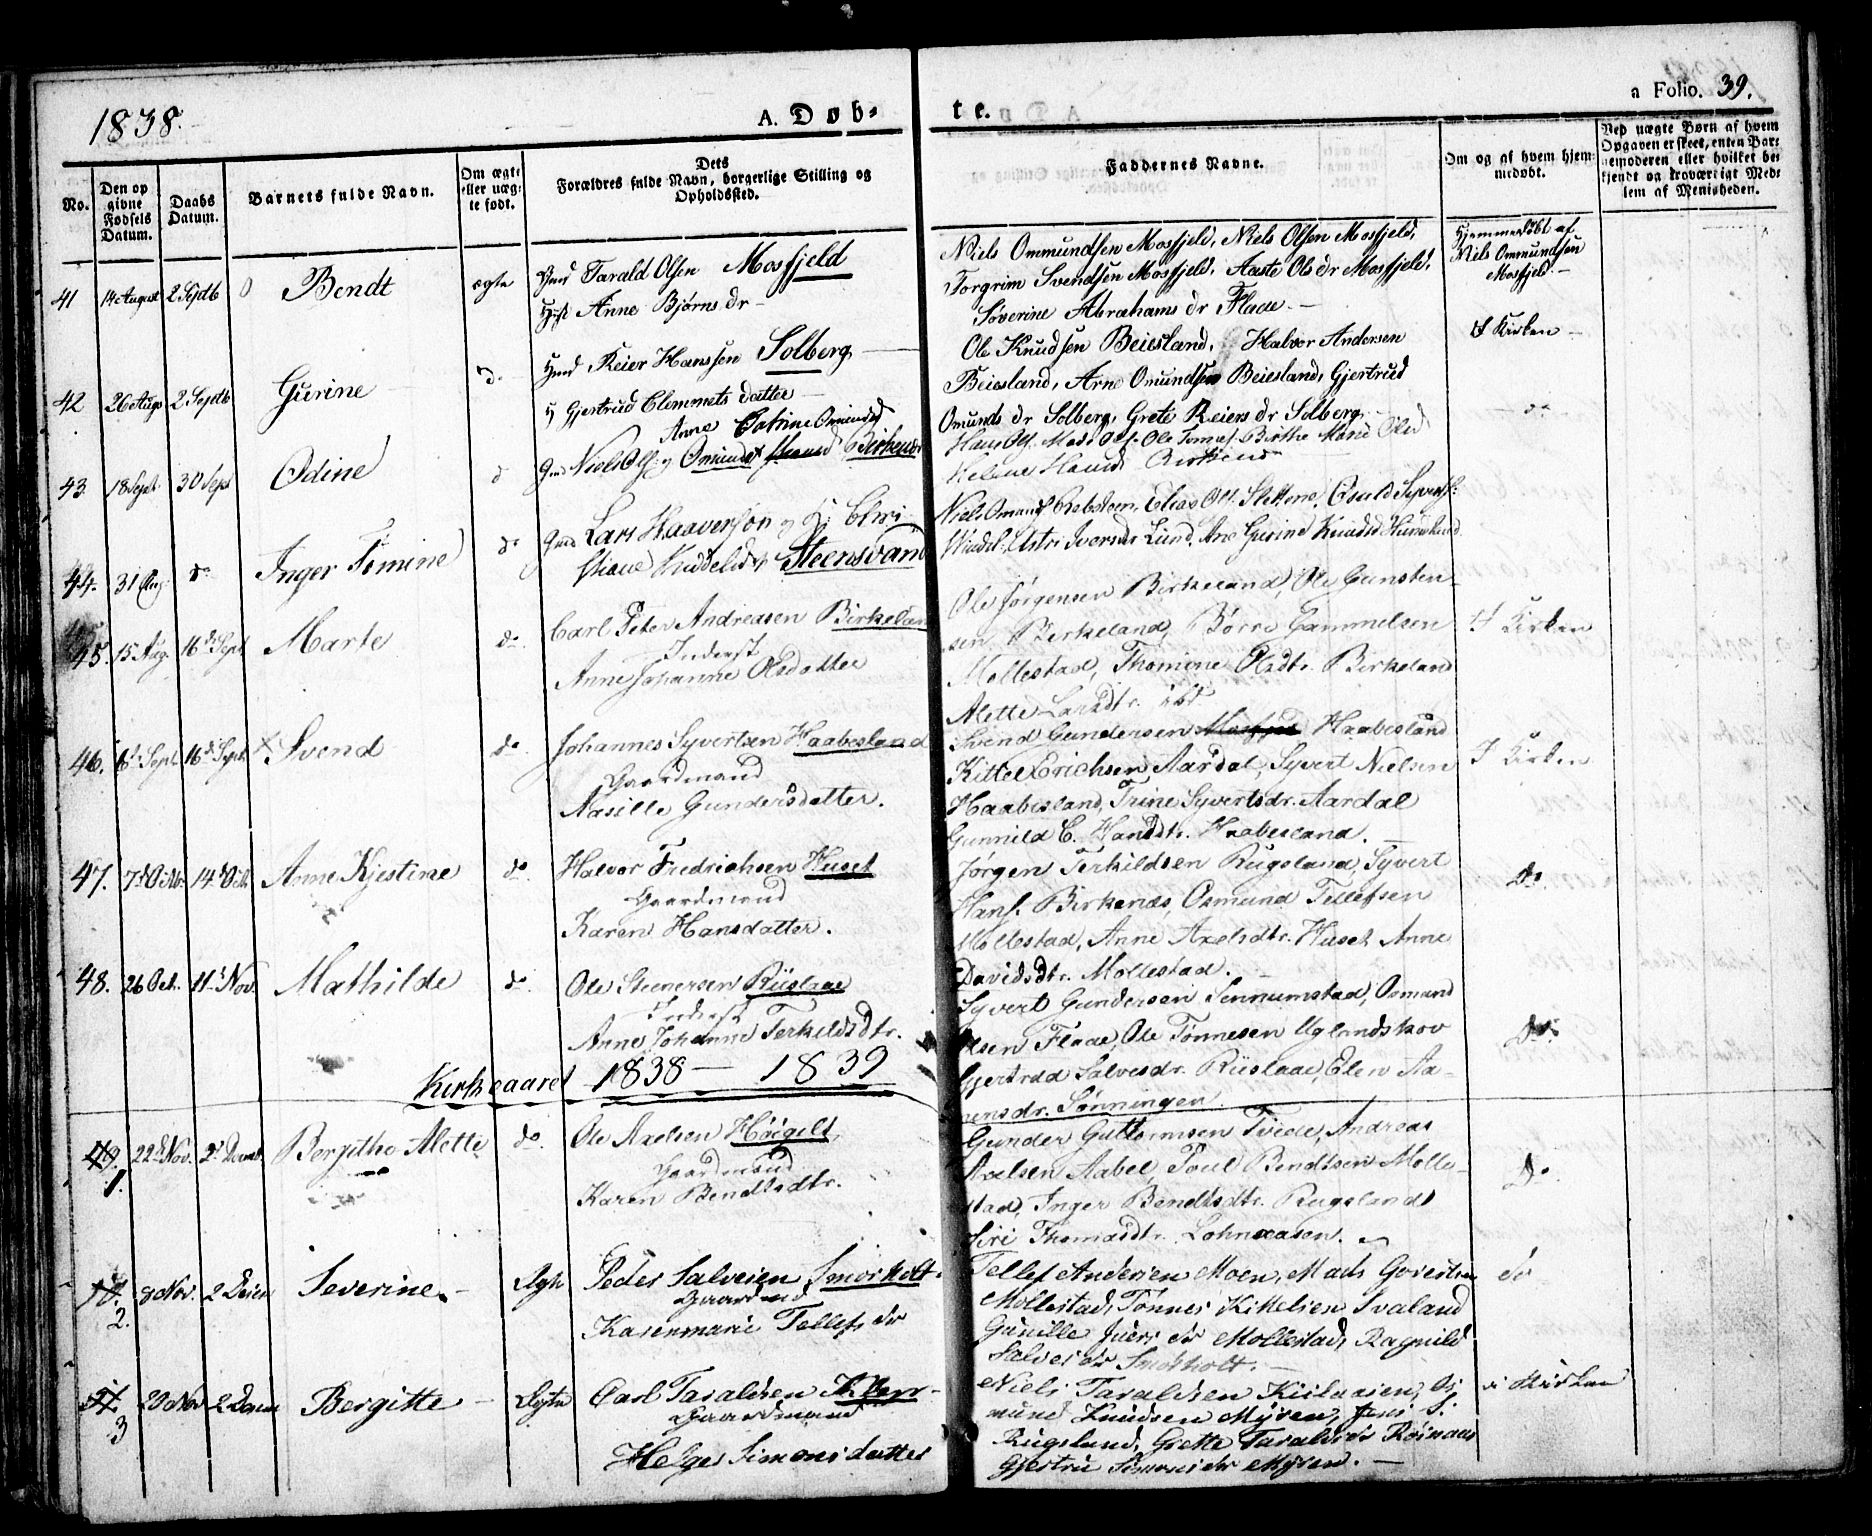 1838.
A. Døb-
te.
a Folio. 39.
No.
Den op
givne
Fødsels
Datum.
Daabs
Datum.
Barnets fulde Navn.
Om ægte
eller uæg-
te født.
Dets
Forældres fulde Navn, borgerlige Stilling og
Opholdssted.
Faddernes Navne.
Om og af hvem hjem-
medøbt.
Ved uægte Børn af hvem
Opgaven er skeet, enten Bar-
nemoderen eller hvilket be-
kjendt og troværdigt Med-
lem af Menigheden.
41 14 August 2 Septb Bendt ægte
Tarald Olsen Mosfjeld
Anne Bjørns dr
Niels Ommundsen Mosfjeld, Niels Olsen Mosfjeld,
Torgrim Svendsen Mosfjeld, Aaste Ols dr Mosfjeld,
Severine Abrahams dr Flaae
Hjemmedøbt af
Niels Ommundsen
Mosfjeld
42 26 Aug 2 Septb Gurine do
Reier Hanssen Solberg
Gjertrud Clemmets datter
Ole Knudsen Beiesland, Halvor Andersen
Beiesland, Arne Omundsen Beiesland, Gjertrud
Omunds dr Solberg, Grete Reiers dr Solberg
I Kirken
43. 18 Sept 30 Sept Odine d
Anne Catrine Omunds
Niels Olss Birkenes
Ole Tomas Birthe Marie Olsd
Helene Hansd Birkenes
do
44. 31 Aug do Inger Tomine do
Lars Haaversøn og H. Chri
stiane Steensvand
Niels Omunds Elias Ols. Syverts
Iversdr Lund, Ane Gurine Knudsd
45. 15 Aug. 16de Sept Marte do
Carl Peter Andreasen Birkeland
Inderst
Anne Johanne Olsdatter
Ole Jørgensen Birkeland, Ole Gunsten-
sen Birkeland, Børre Gammelsen
Mollestad, Thomine Olsdtr. Birkeland
Alette Larsdtr. ibt
I Kirken
46. Sept. 16de Sept. Svend do
Johannes Syvertsen Haabesland
Gaardmand
Aasille Gundersdatter.
Svend Gundersen Haabesland
Kittel Erichsen Aardal, Syvert Nielsen
Haabesland, Trine Syvertsdr. Aardal
Gunnild E. Hansdtr. Haabesland.
I Kirken
47. 7de Octbr. 14de Oct. Anne Kjestine do
Halvor Fredrichsen Huset
Gaardmand
Karen Hansdatter.
Jørgen Terkildsen Rugsland, Syvert
Hans. Birkenæs, Osmund Tellefsen
Mollestad, Anne Axelsdtr. Huset Anne
Davidsdtr. Mollestad.
do.
48. 26 Oct. 11te Nov. Mathilde do
Ole Steenersen Riislaae
Inderst
Anne Johanne Terkildsdtr.
Syvert Gundersen Sennumstad, Osmund
Olsen Flaae, Ole Tønnesen Uglandskov
Gjertrud Salvesdr. Riislaae, Elen Aa-
nensdr. Sønningen
do.
Kirkeaaret 1838 — 1839
49. 1. 22de Nov. 2de Decemb. Bergithe Alette do
Ole Axelsen Høigilt
Gaardmand
Karen Bendtsdtr.
Gunder Guttormsen Tvede, Andreas
Axelsen Aabel, Poul Bendtsen Molle-
stad, Inger Bendtsdtr. Rugsland
Siri Thomasdtr. Lohneaasen.
Do.
50. 2. 8 Nov. 2 Decem Severine. Ægte
Peder Salvesen Smørholt
Gaardmd
Karenmarie Tellefs dr
Tellef Andersen Moen, Mads Govertsen
Mollestad, Tønnes Kittelsen Svaland
Gunille Juers dr Mollestad, Ragnild
Salves dr Smørholt.
do
51. 3 20 Nov 2 Decem Bergitte Ægte
Carl Taraldsen
Gaardmand
Helge Simonsdatter
Niels Taraldsen Os-
mund Knudsen Myren, Jens
Rugsland, Grette Taralds dr
Gjertru Simons dr Myren.
i Kirken